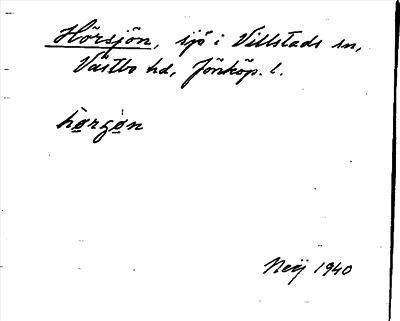 Hörsjön, sjö i Villstads sn,
Västbo hd, Jönköp. l.
Neij 1940